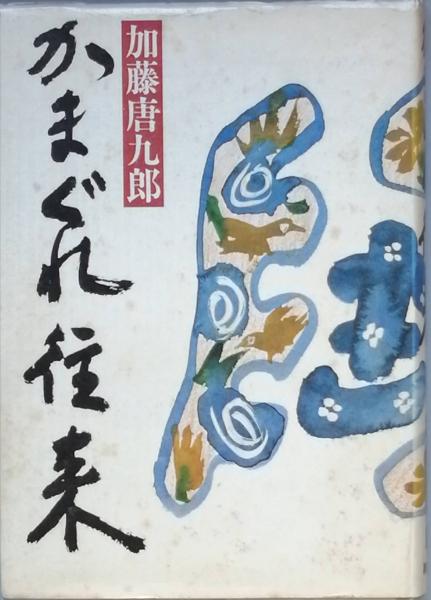 加藤唐九郎
かまぐれ往来